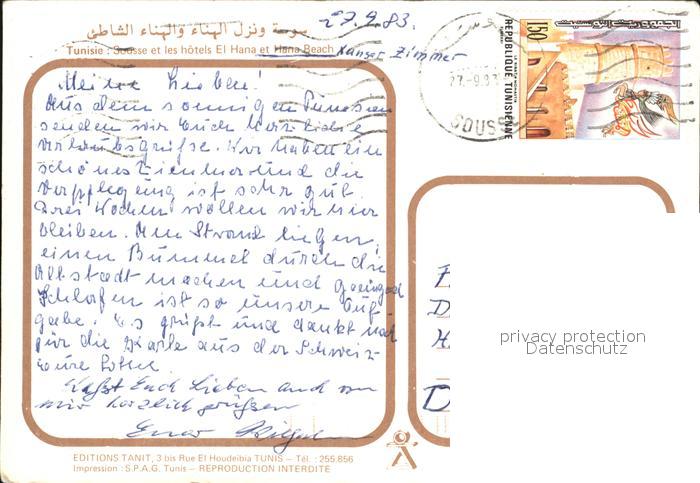 سوسة ونزل الهناء والهناء الشاطئ
27.9.83.
Tunisie : Sousse et les hôtels El Hana et Hana Beach
unser Zimmer
Meine Lieben!
Aus dem sonnigen Tunesien
senden wir Euch herzliche
Urlaubsgrüße. Wir haben ein
schönes Zimmer und die
Verpflegung ist sehr gut.
Drei Wochen wollen wir hier
bleiben. Am Strand liegen,
einen Bummel durch die
Altstadt machen und genügend
Schlafen ist so unsere Auf-
gabe. Es grüßt und dankt
für die Karte aus der Schweiz
Eure
Laßt Euch Lieben auch von
mir herzlich grüßen
Euer
EDITIONS TANIT, 3 bis Rue El Houdeibia TUNIS – Tél. : 255.856
Impression : S.P.A.G. Tunis – REPRODUCTION INTERDITE
الجمهورية التونسية
150
REPUBLIQUE TUNISIENNE
27-9.83
SOUSSE
D
H
D
privacy protection
Datenschutz